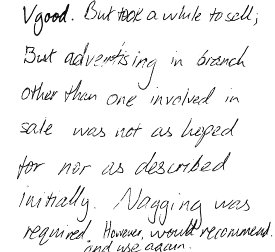 Vgood. But took a while to sell;
But advertising in branch
other than one involved in
sale was not as hoped
for nor as described
initially. Nagging was
required. However, would recommend
and use again.